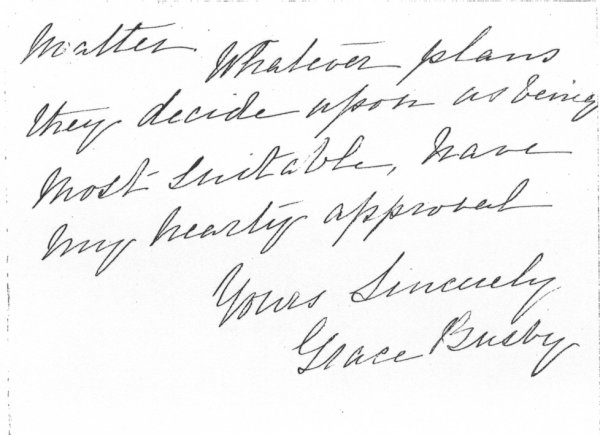 Matter Whatever plans
they decide upon as being
most suitable, have
my hearty approval
Yours Sincerely
Grace Busby